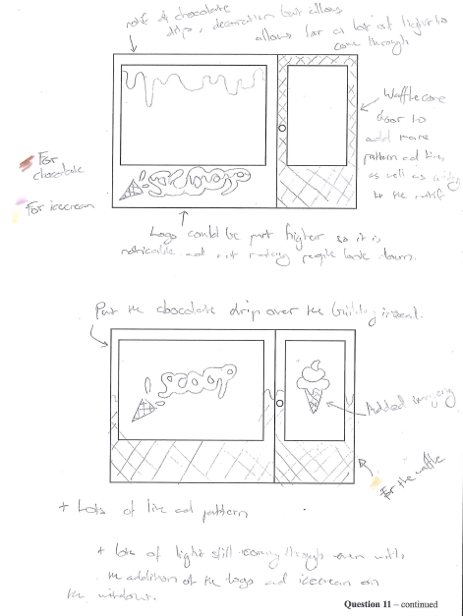 motif of chocolate
drips, decoration but allows
allows for a lot of light to
come through
Waffle cone
door to
add more
pattern and lines
as well as
to the motif
For
chocolate
For icecream
Logo could be put higher so it is
noticeable and not making people look down.
Put the chocolate drip over the building instead.
scoop
Added imagery
For the waffle
+ Lots of line and pattern
+ lots of light still coming through even with
the addition of the logo and icecream on
the windows.
Question 11 – continued